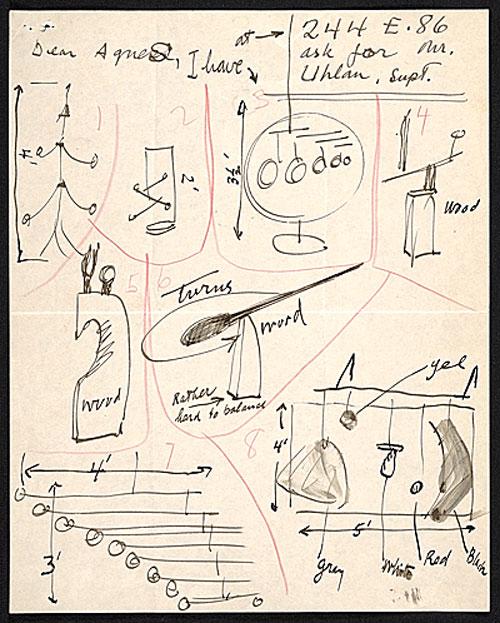 Dear Agnes, I have
at → 244 E. 86
ask for Mr.
Uhlan, Supt.
1
2
3
4
2'
3½'
wood
5
6
Turns
wood
wood
Rather
hard to balance
7
8
yel
4'
4'
3'
5'
gray
White
Red
Black